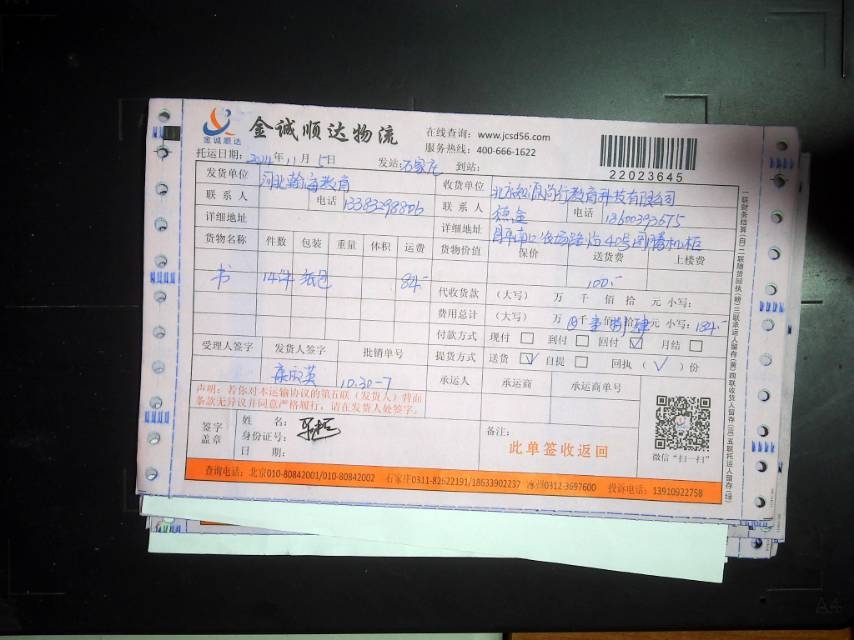 金诚顺达
金诚顺达物流
在线查询：www.jcsd56.com
服务热线：400-666-1622
22023645
托运日期：2014年11月5日 发站：石家庄 到站：
发货单位 河北翰海教育 收货单位 北京知浪尚行教育科技有限公司
联系人 电话 13383298806 联系人 电话 13600393675
详细地址 详细地址
货物名称 件数 包装 重量 体积 运费 货物价值 保价 送货费 上楼费
书 14件 纸包 84.- 100.-
代收货款 （大写） 万 千 佰 拾 元 小写：
费用总计 （大写） 万 千 佰 拾 元 小写：184.-
付款方式 现付 到付 回付 √ 月结
受理人签字 发货人签字 批销单号 提货方式 送货 √ 自提 回执（√）份
10.30-7 承运人 承运商 承运商单号
声明：若你对本运输协议的第五联（发货人）背面
条款无异议并同意严格履行，请在发货人处签字。
签字
盖章
姓 名：
身份证号：
日 期：
备注：
此单签收返回
微信“扫一扫”
查询电话：北京010-80842001/010-80842002 石家庄0311-82622191/18633902237 涿州0312-3697600 投诉电话：13910922758
A4